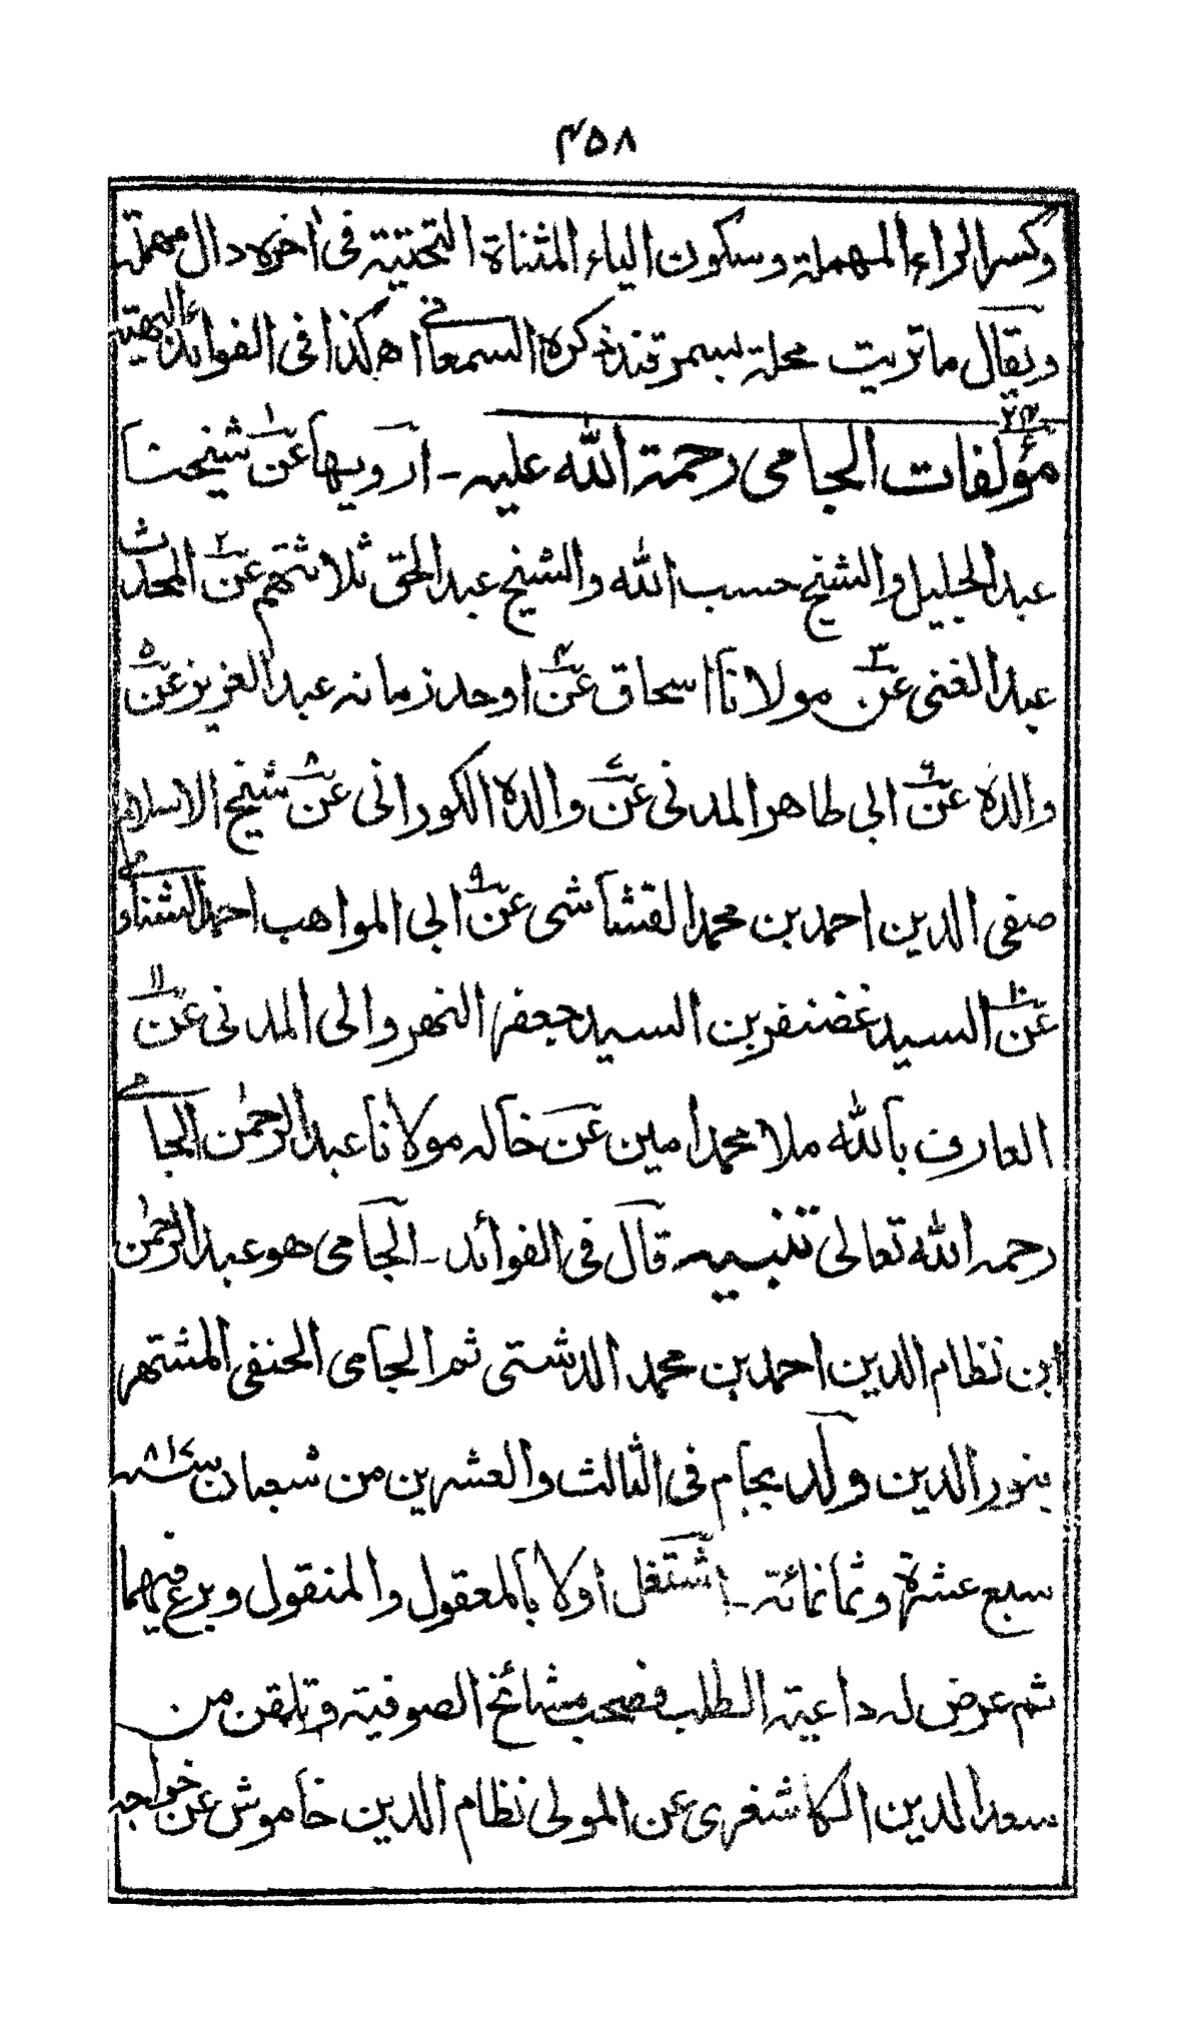 ۴۵۸
وكسر الراء المهملة وسكون الياء المثناة التحتية فى اخره دال مهملة
ويقال ماتريت محلة بسمرقند ذكره السمعانى اه هكذا فى الفوائد البهية
مؤلفات الجامى رحمة الله عليه ـ ارويها عن ۱ شيخنا
عبد الجليل والشيخ حسب الله والشيخ عبد الحق ثلاثتهم عن ۲ المحدث
عبد الغنى عن ۳ مولانا اسحاق عن ۴ اوحد زمانه عبد العزيز عن ۵
والده عن ۶ ابى طاهر المدنى عن ۷ والده الكورانى عن ۸ شيخ الاسلام
صفى الدين احمد بن محمد القشاشى عن ۹ ابى المواهب احمد الشناوى
عن ۱۰ السيد غضنفر بن السيد جعفر النهروالى المدنى عن ۱۱
العارف بالله ملا محمد امين عن خاله مولانا عبد الرحمٰن الجامى
رحمه الله تعالى تنبيه قال فى الفوائد ـ الجامى هو عبد الرحمٰن
ابن نظام الدين احمد بن محمد الدشتى ثم الجامى الحنفى المشتهر
بنور الدين ولد بجام فى الثالث والعشرين من شعبان سنة ۸۱۷
سبع عشرة وثمانمائة ـ اشتغل اولا بالمعقول والمنقول وبرع فيهما
ثم عرض له داعية الطلب فصحب مشائخ الصوفية وتلقن من
سعد الدين الكاشغرى عن المولى نظام الدين خاموش عن خواجه